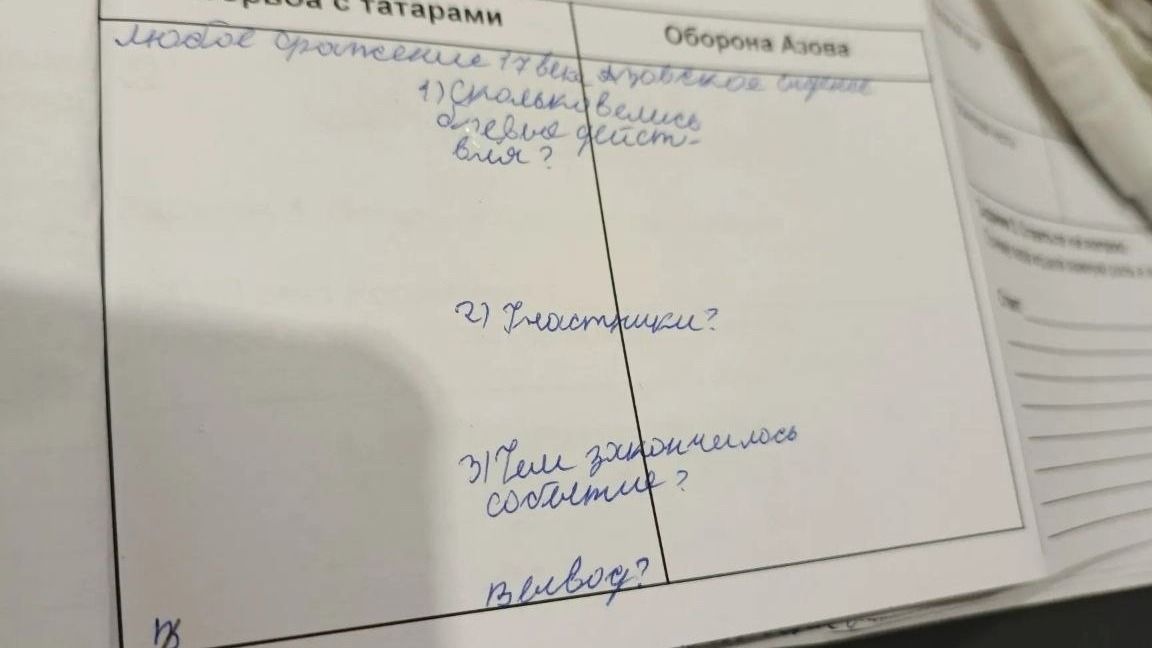 с татарами
Оборона Азова
любое сражение 17 века Азовское сидение
1) Сколько велись
боевые дейст-
вия?
2) Участники?
3) Чем закончилось
событие?
Вывод?